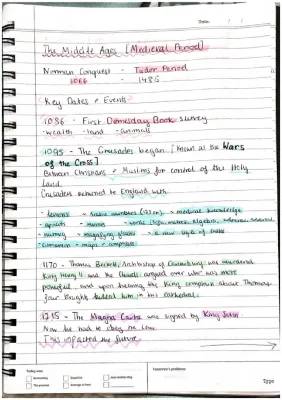 Date: / /
The Middle Ages [Medieval Period]
Norman Conquest - Tudor Period
1066 1485
Key Dates + Events
1086 - First Domesday Book survey
-wealth -land -animals
1095 - The Crusades began [known as the Wars
of the Cross]
Between Christians + Muslims for control of the Holy
Land.
Crusaders returned to England with
- lemons - Arabic numbers - medical knowledge
- apricots - mirrors algebra,
- nutmeg - magnifying glasses - a new style of
Cinnamon - maps + compass
1170 - Thomas Beckett, Archbishop of Canterbury was murdered
King Henry II and the Church argued over who was more
powerful and upon hearing the King complain about Thomas,
four knights killed him in his cathedral.
1215 - The Magna Carta was signed by King John
Now he had to obey the law.
This impacted the future
Type